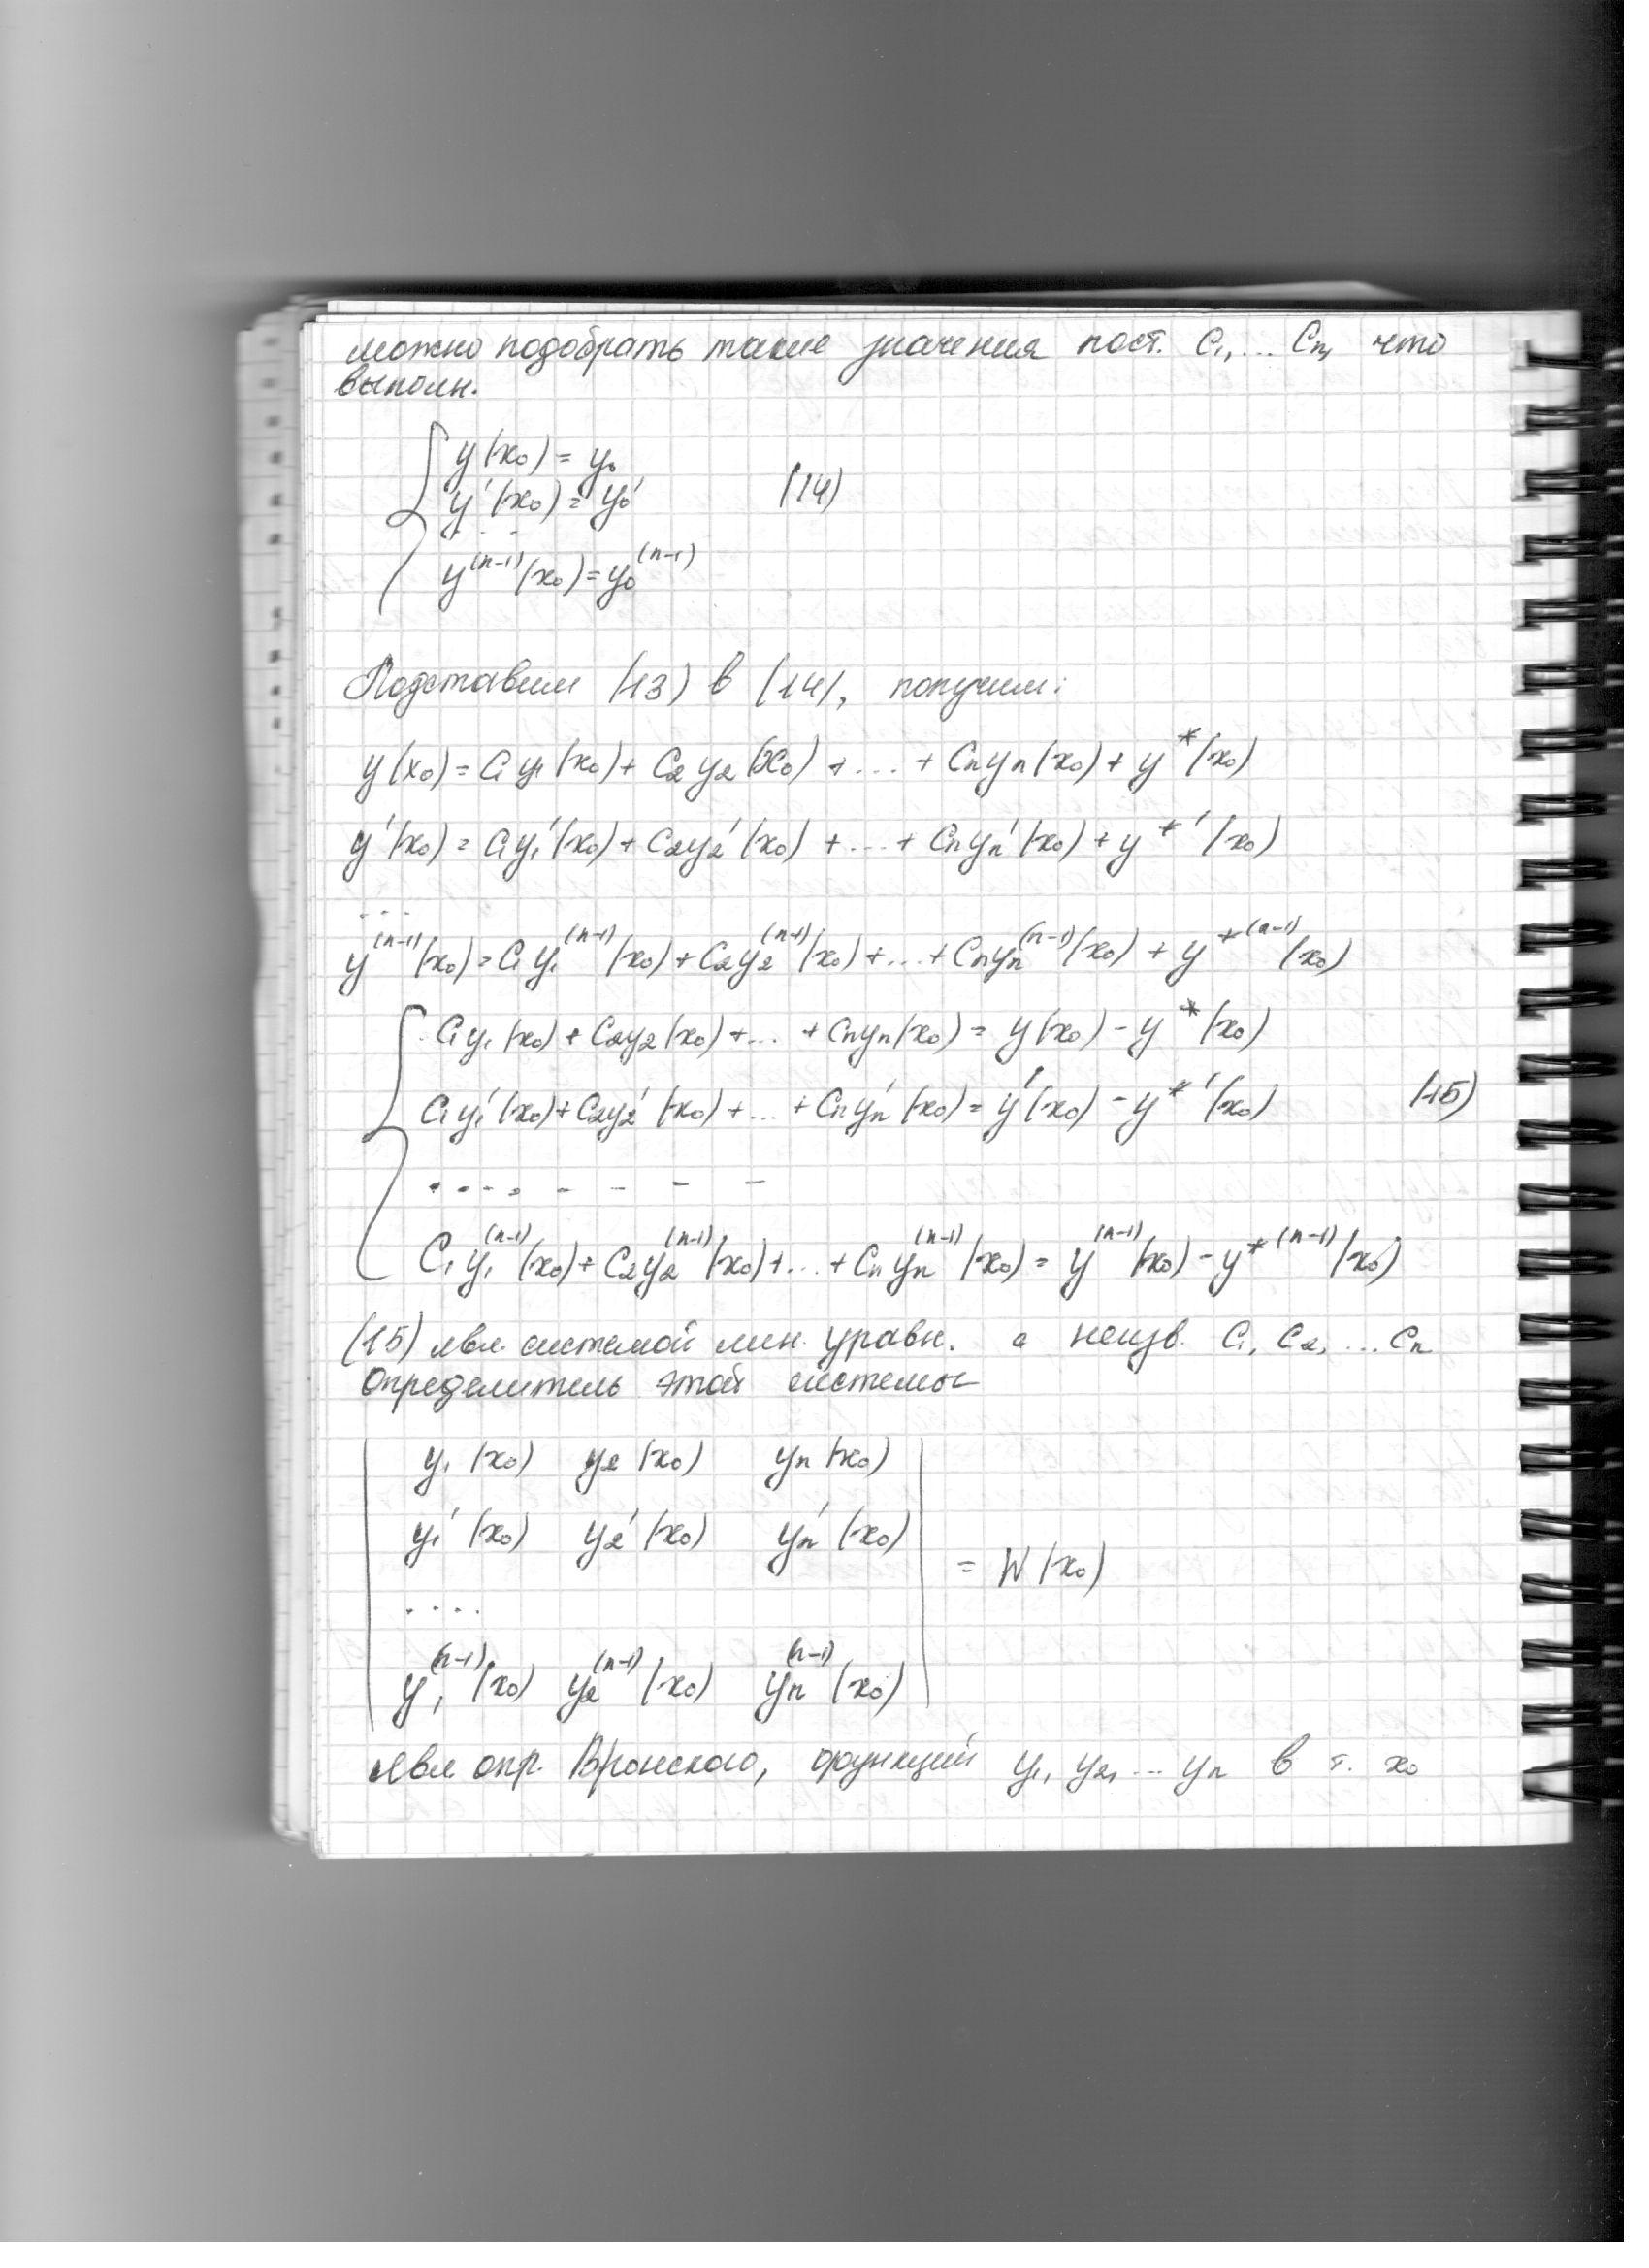 можно подобрать такие значения пост. C₁, ... Cₙ, что
выполн.
y(x₀) = y₀
y'(x₀) = y₀' (14)
...
y⁽ⁿ⁻¹⁾(x₀) = y₀⁽ⁿ⁻¹⁾
Подставим (13) в (14), получим:
y(x₀) = C₁y₁(x₀) + C₂y₂(x₀) + ... + Cₙyₙ(x₀) + y*(x₀)
y'(x₀) = C₁y₁'(x₀) + C₂y₂'(x₀) + ... + Cₙyₙ'(x₀) + y*'(x₀)
...
y⁽ⁿ⁻¹⁾(x₀) = C₁y₁⁽ⁿ⁻¹⁾(x₀) + C₂y₂⁽ⁿ⁻¹⁾(x₀) + ... + Cₙyₙ⁽ⁿ⁻¹⁾(x₀) + y*⁽ⁿ⁻¹⁾(x₀)
C₁y₁(x₀) + C₂y₂(x₀) + ... + Cₙyₙ(x₀) = y(x₀) - y*(x₀)
C₁y₁'(x₀) + C₂y₂'(x₀) + ... + Cₙyₙ'(x₀) = y'(x₀) - y*'(x₀) (15)
.... - - - -
C₁y₁⁽ⁿ⁻¹⁾(x₀) + C₂y₂⁽ⁿ⁻¹⁾(x₀) + ... + Cₙyₙ⁽ⁿ⁻¹⁾(x₀) = y⁽ⁿ⁻¹⁾(x₀) - y*⁽ⁿ⁻¹⁾(x₀)
(15) явл. системой лин. уравн. с неизв. C₁, C₂, ... Cₙ
Определитель этой системы
y₁(x₀) y₂(x₀) yₙ(x₀)
y₁'(x₀) y₂'(x₀) yₙ'(x₀)
= W(x₀)
....
y₁⁽ⁿ⁻¹⁾(x₀) y₂⁽ⁿ⁻¹⁾(x₀) yₙ⁽ⁿ⁻¹⁾(x₀)
явл. опр. Вронского, функций y₁, y₂, ... yₙ в т. x₀